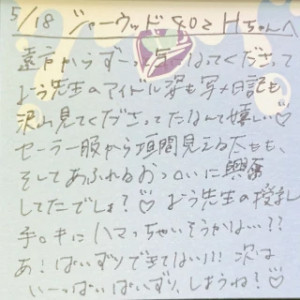 5/18 ジャーウッド402 Hちゃんへ
遠方からずーっと気になってくださって
どう先生のアイドル姿も写メ日記も
沢山見てくださってたなんて嬉しい♡
セーラー服から垣間見える太もも、
そしてあふれるおっ○いに興奮
してたでしょ?♡ どう先生の授乳
手○キにハマっちゃいそうかな…??
あ!ぱいずりできてない!!! 次は
いーっぱいぱいずりしようね?♡